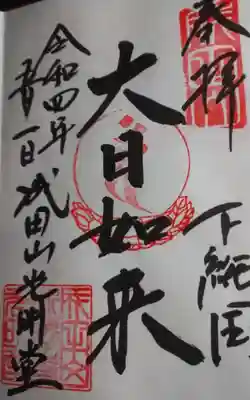 奉拝
下総国
大日如来
令和四年
五月一日 成田山光明堂